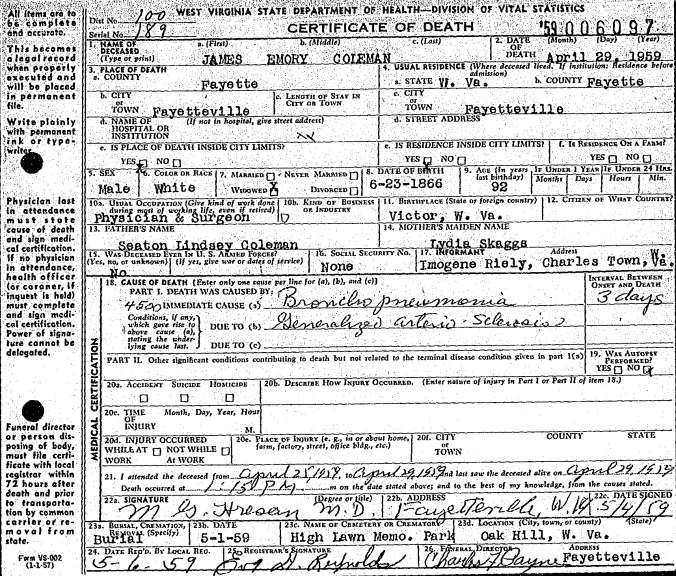 WEST VIRGINIA STATE DEPARTMENT OF HEALTH—DIVISION OF VITAL STATISTICS
Dist No. 100
Serial No. 189
CERTIFICATE OF DEATH
'59 006097
All items are to be complete and accurate.
This becomes a legal record when properly executed and will be placed in permanent file.
Write plainly with permanent ink or typewriter.
Physician last in attendance must state cause of death and sign medical certification. If no physician in attendance, health officer (or coroner, if inquest is held) must complete and sign medical certification. Power of signature cannot be delegated.
Funeral director or person disposing of body, must file certificate with local registrar within 72 hours after death and prior to transportation by common carrier or removal from state.
Form VS-002
(1-1-57)
1. NAME OF DECEASED (Type or print) a. (First) b. (Middle) c. (Last) 2. DATE OF DEATH (Month) (Day) (Year)
JAMES EMORY COLEMAN April 29, 1959
3. PLACE OF DEATH 4. USUAL RESIDENCE (Where deceased lived. If institution: Residence before admission)
a. COUNTY Fayette a. STATE W. Va. b. COUNTY Fayette
b. CITY or TOWN Fayetteville c. LENGTH OF STAY IN CITY OR TOWN c. CITY or TOWN Fayetteville
d. NAME OF HOSPITAL OR INSTITUTION (If not in hospital, give street address) d. STREET ADDRESS
e. IS PLACE OF DEATH INSIDE CITY LIMITS? e. IS RESIDENCE INSIDE CITY LIMITS? f. IS RESIDENCE ON A FARM?
YES NO YES NO YES NO
5. SEX 6. COLOR OR RACE 7. MARRIED NEVER MARRIED 8. DATE OF BIRTH 9. AGE (In years last birthday) IF UNDER 1 YEAR IF UNDER 24 HRS.
Male White WIDOWED X DIVORCED 6-23-1866 92 Months Days Hours Min.
10a. USUAL OCCUPATION (Give kind of work done during most of working life, even if retired) 10b. KIND OF BUSINESS OR INDUSTRY 11. BIRTHPLACE (State or foreign country) 12. CITIZEN OF WHAT COUNTRY?
Physician & Surgeon Victor, W. Va.
13. FATHER'S NAME 14. MOTHER'S MAIDEN NAME
Seaton Lindsey Coleman Lydia Skaggs
15. WAS DECEASED EVER IN U. S. ARMED FORCES? (Yes, no, or unknown) (If yes, give war or dates of service) 16. SOCIAL SECURITY No. 17. INFORMANT Address
No None Imogene Riely, Charles Town, W. Va.
18. CAUSE OF DEATH (Enter only one cause per line for (a), (b), and (c)) INTERVAL BETWEEN ONSET AND DEATH
PART I. DEATH WAS CAUSED BY:
4500 IMMEDIATE CAUSE (a) Broncho pneumonia 3 days
Conditions, if any, which gave rise to above cause (a), stating the underlying cause last.
DUE TO (b) Generalized Arterio-Sclerosis
DUE TO (c)
MEDICAL CERTIFICATION
PART II. Other significant conditions contributing to death but not related to the terminal disease condition given in part 1(a) 19. WAS AUTOPSY PERFORMED?
YES NO
20a. ACCIDENT SUICIDE HOMICIDE 20b. DESCRIBE HOW INJURY OCCURRED. (Enter nature of injury in Part I or Part II of item 18.)
20c. TIME OF INJURY Month, Day, Year, Hour M.
20d. INJURY OCCURRED WHILE AT WORK NOT WHILE AT WORK 20e. PLACE OF INJURY (e. g., in or about home, farm, factory, street, office bldg., etc.) 20f. CITY or TOWN COUNTY STATE
21. I attended the deceased from April 25, 1959, to April 29, 1959 and last saw the deceased alive on April 29, 1959
Death occurred at 1:15 P M m on the date stated above; and to the best of my knowledge, from the causes stated.
22a. SIGNATURE (Degree or title) 22b. ADDRESS 22c. DATE SIGNED
M. D. Fayetteville, W. Va 5/4/59
23a. BURIAL, CREMATION, REMOVAL (Specify) 23b. DATE 23c. NAME OF CEMETERY OR CREMATORY 23d. LOCATION (City, town, or county) (State)
Burial 5-1-59 High Lawn Memo. Park Oak Hill, W. Va.
24. DATE REC'D. BY LOCAL REG. 25. REGISTRAR'S SIGNATURE 26. FUNERAL DIRECTOR ADDRESS
5-6-59 Reynolds Charles Payne Fayetteville